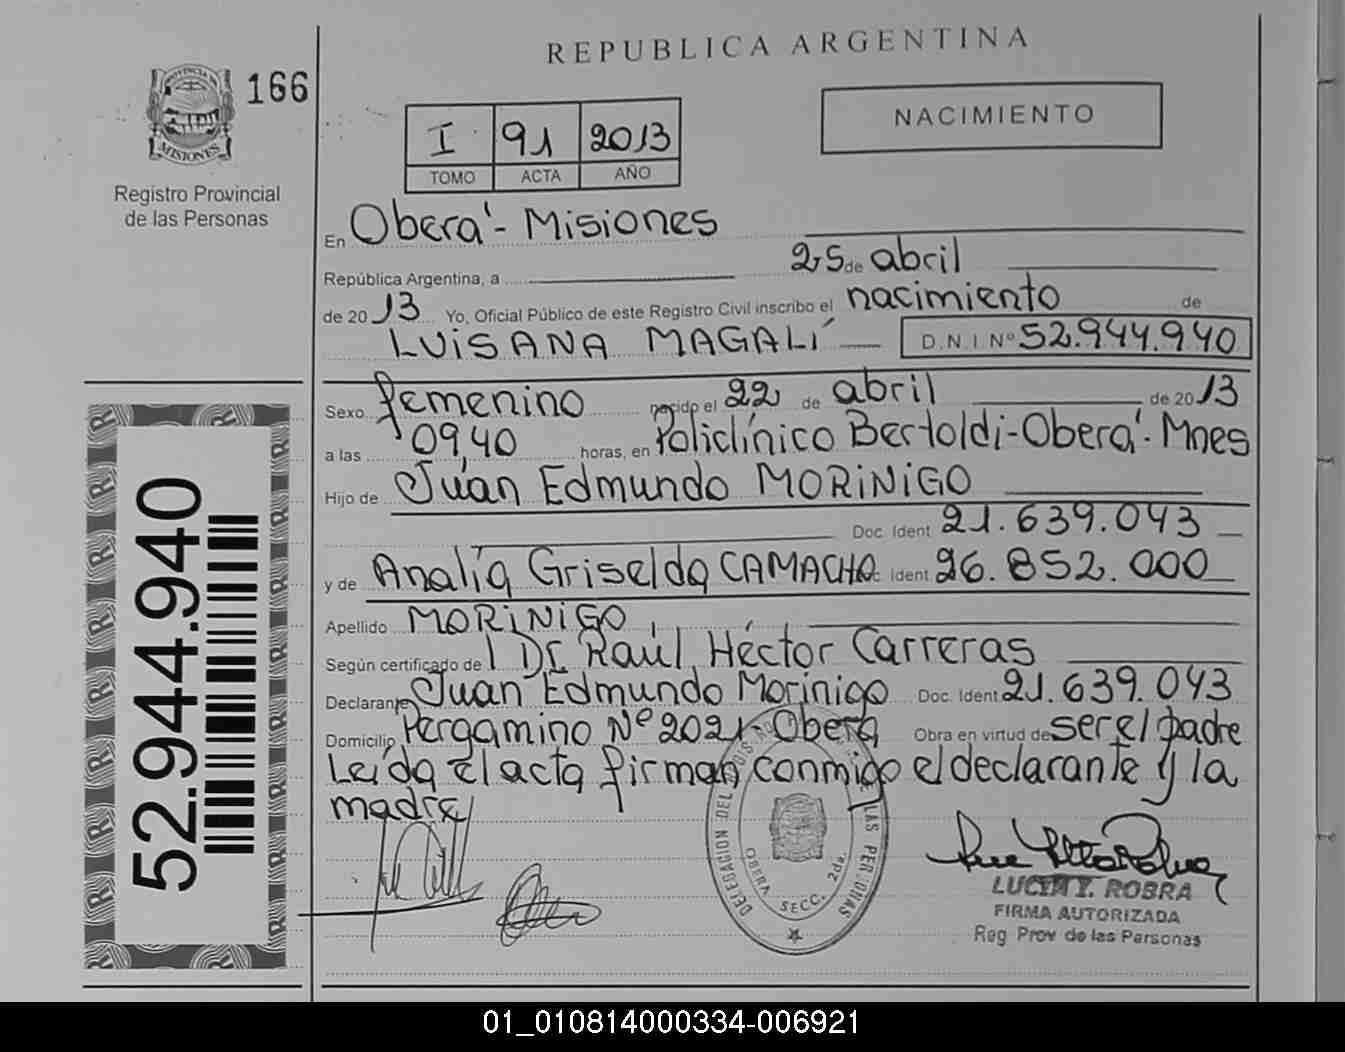 REPUBLICA ARGENTINA
PROVINCIA DE
MISIONES
166
Registro Provincial
de las Personas
I 91 2013
TOMO ACTA AÑO
NACIMIENTO
En Oberá - Misiones
República Argentina, a 25 de abril
de 2013 Yo, Oficial Público de este Registro Civil inscribo el nacimiento de
LUISANA MAGALÍ D.N.I Nº 52.944.940
Sexo femenino nacido el 22 de abril de 2013
a las 09,40 horas, en Policlínico Bertoldi - Oberá - Mnes
Hijo de Juan Edmundo MORINIGO
Doc. Ident 21.639.043
y de Analía Griselda CAMACHO Doc. Ident 26.852.000
Apellido MORINIGO
Según certificado de Dr. Raúl Héctor Carreras
Declarante Juan Edmundo Morinigo Doc. Ident 21.639.043
Domicilio Pergamino Nº 2021 - Oberá Obra en virtud de ser el padre
Leída el acta firman conmigo el declarante y la
madre
52.944.940
DELEGACION DEL LAS PERSONAS
OBERA SECC. 2da.
LUCIA Y. ROBRA
FIRMA AUTORIZADA
Reg Prov de las Personas
01_010814000334-006921